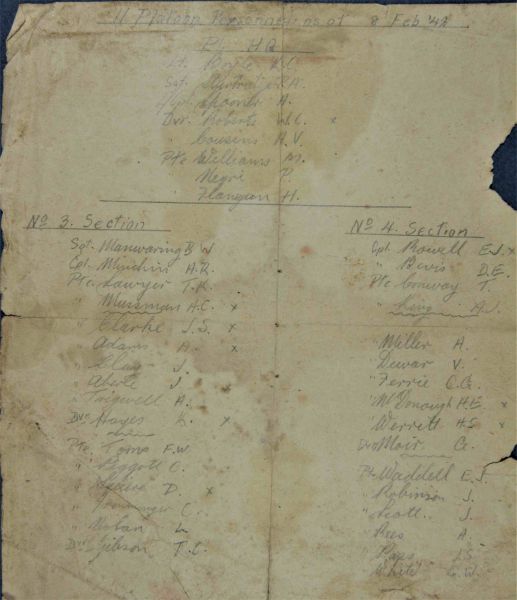 11 Platoon Personnel as at 8 Feb '42
Pl. HQ
Lt. Royle
Sgt. R.A.
Spooner A.
Dvr. Roberts W.C. x
" Cousins H.V.
Pte Williams M.
Negri P.
Flanigan H.
No 3. Section
Sgt. Manwaring B W
Cpl. Minchin A.R.
Pte. Sawyer T.K.
" Mussman H.C. x
" Clarke J.S. x
" Adams A. x
" Clay J.
" Aberle J.
" Trigwell A.
Dvr. Hayes L. x
Pte Toms F.W.
" Piggott C.
" D. x
" C.
" Nolan L.
Dvr. Gibson T.C.
No 4. Section
Cpl. Powell E.J. x
" Bevis D.E.
Pte Conway T.
" King A.J.
" Miller A.
" Dewar V.
" Ferrie C.G.
" McDonough H.E. x
" Werrett H.S. x
Dvr Moir G.
Pte Waddell E.J.
" Robinson J.
" Scott J.
" Rees A.
" J.S.
" White G.W.